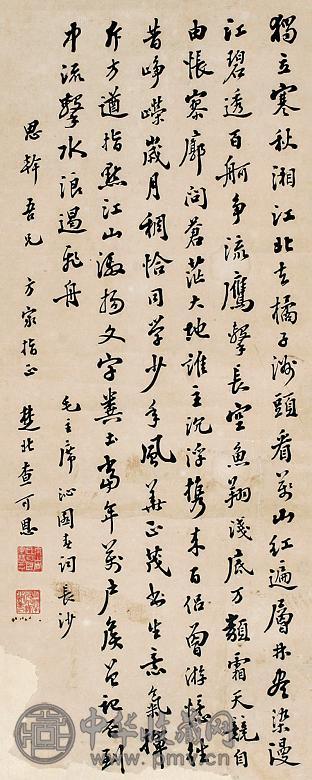 獨立寒秋湘江北去橘子洲頭看萬山紅遍層林尽染漫
江碧透百舸争流鷹擊長空魚翔淺底万類霜天競自
由悵寥廓問蒼茫大地誰主沉浮携来百侣曾游憶往
昔崢嶸歲月稠恰同学少年風華正茂書生意氣揮
斥方遒指點江山激揚文字糞土當年萬户侯曾記否到
中流擊水浪遏飛舟
毛主席沁園春词 長沙
思幹吾兄 方家指正 楚北查可恩
中华收藏网